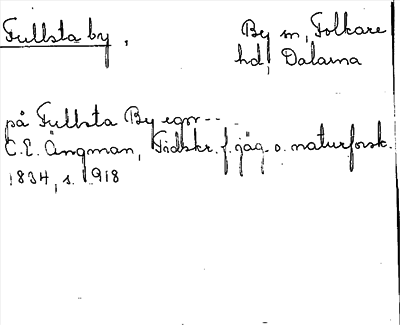 Fullsta by, By sn, Folkare
hd, Dalarna
på Fullsta By egor---
C.E. Ångman, Tidskr. f. jäg. o. naturforsk.
1834, s. 918